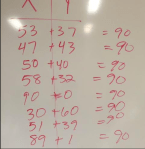 X Y
53 + 37 = 90
47 + 43 = 90
50 + 40 = 90
58 + 32 = 90
90 + 0 = 90
30 + 60 = 90
51 + 39 = 90
89 + 1 = 90